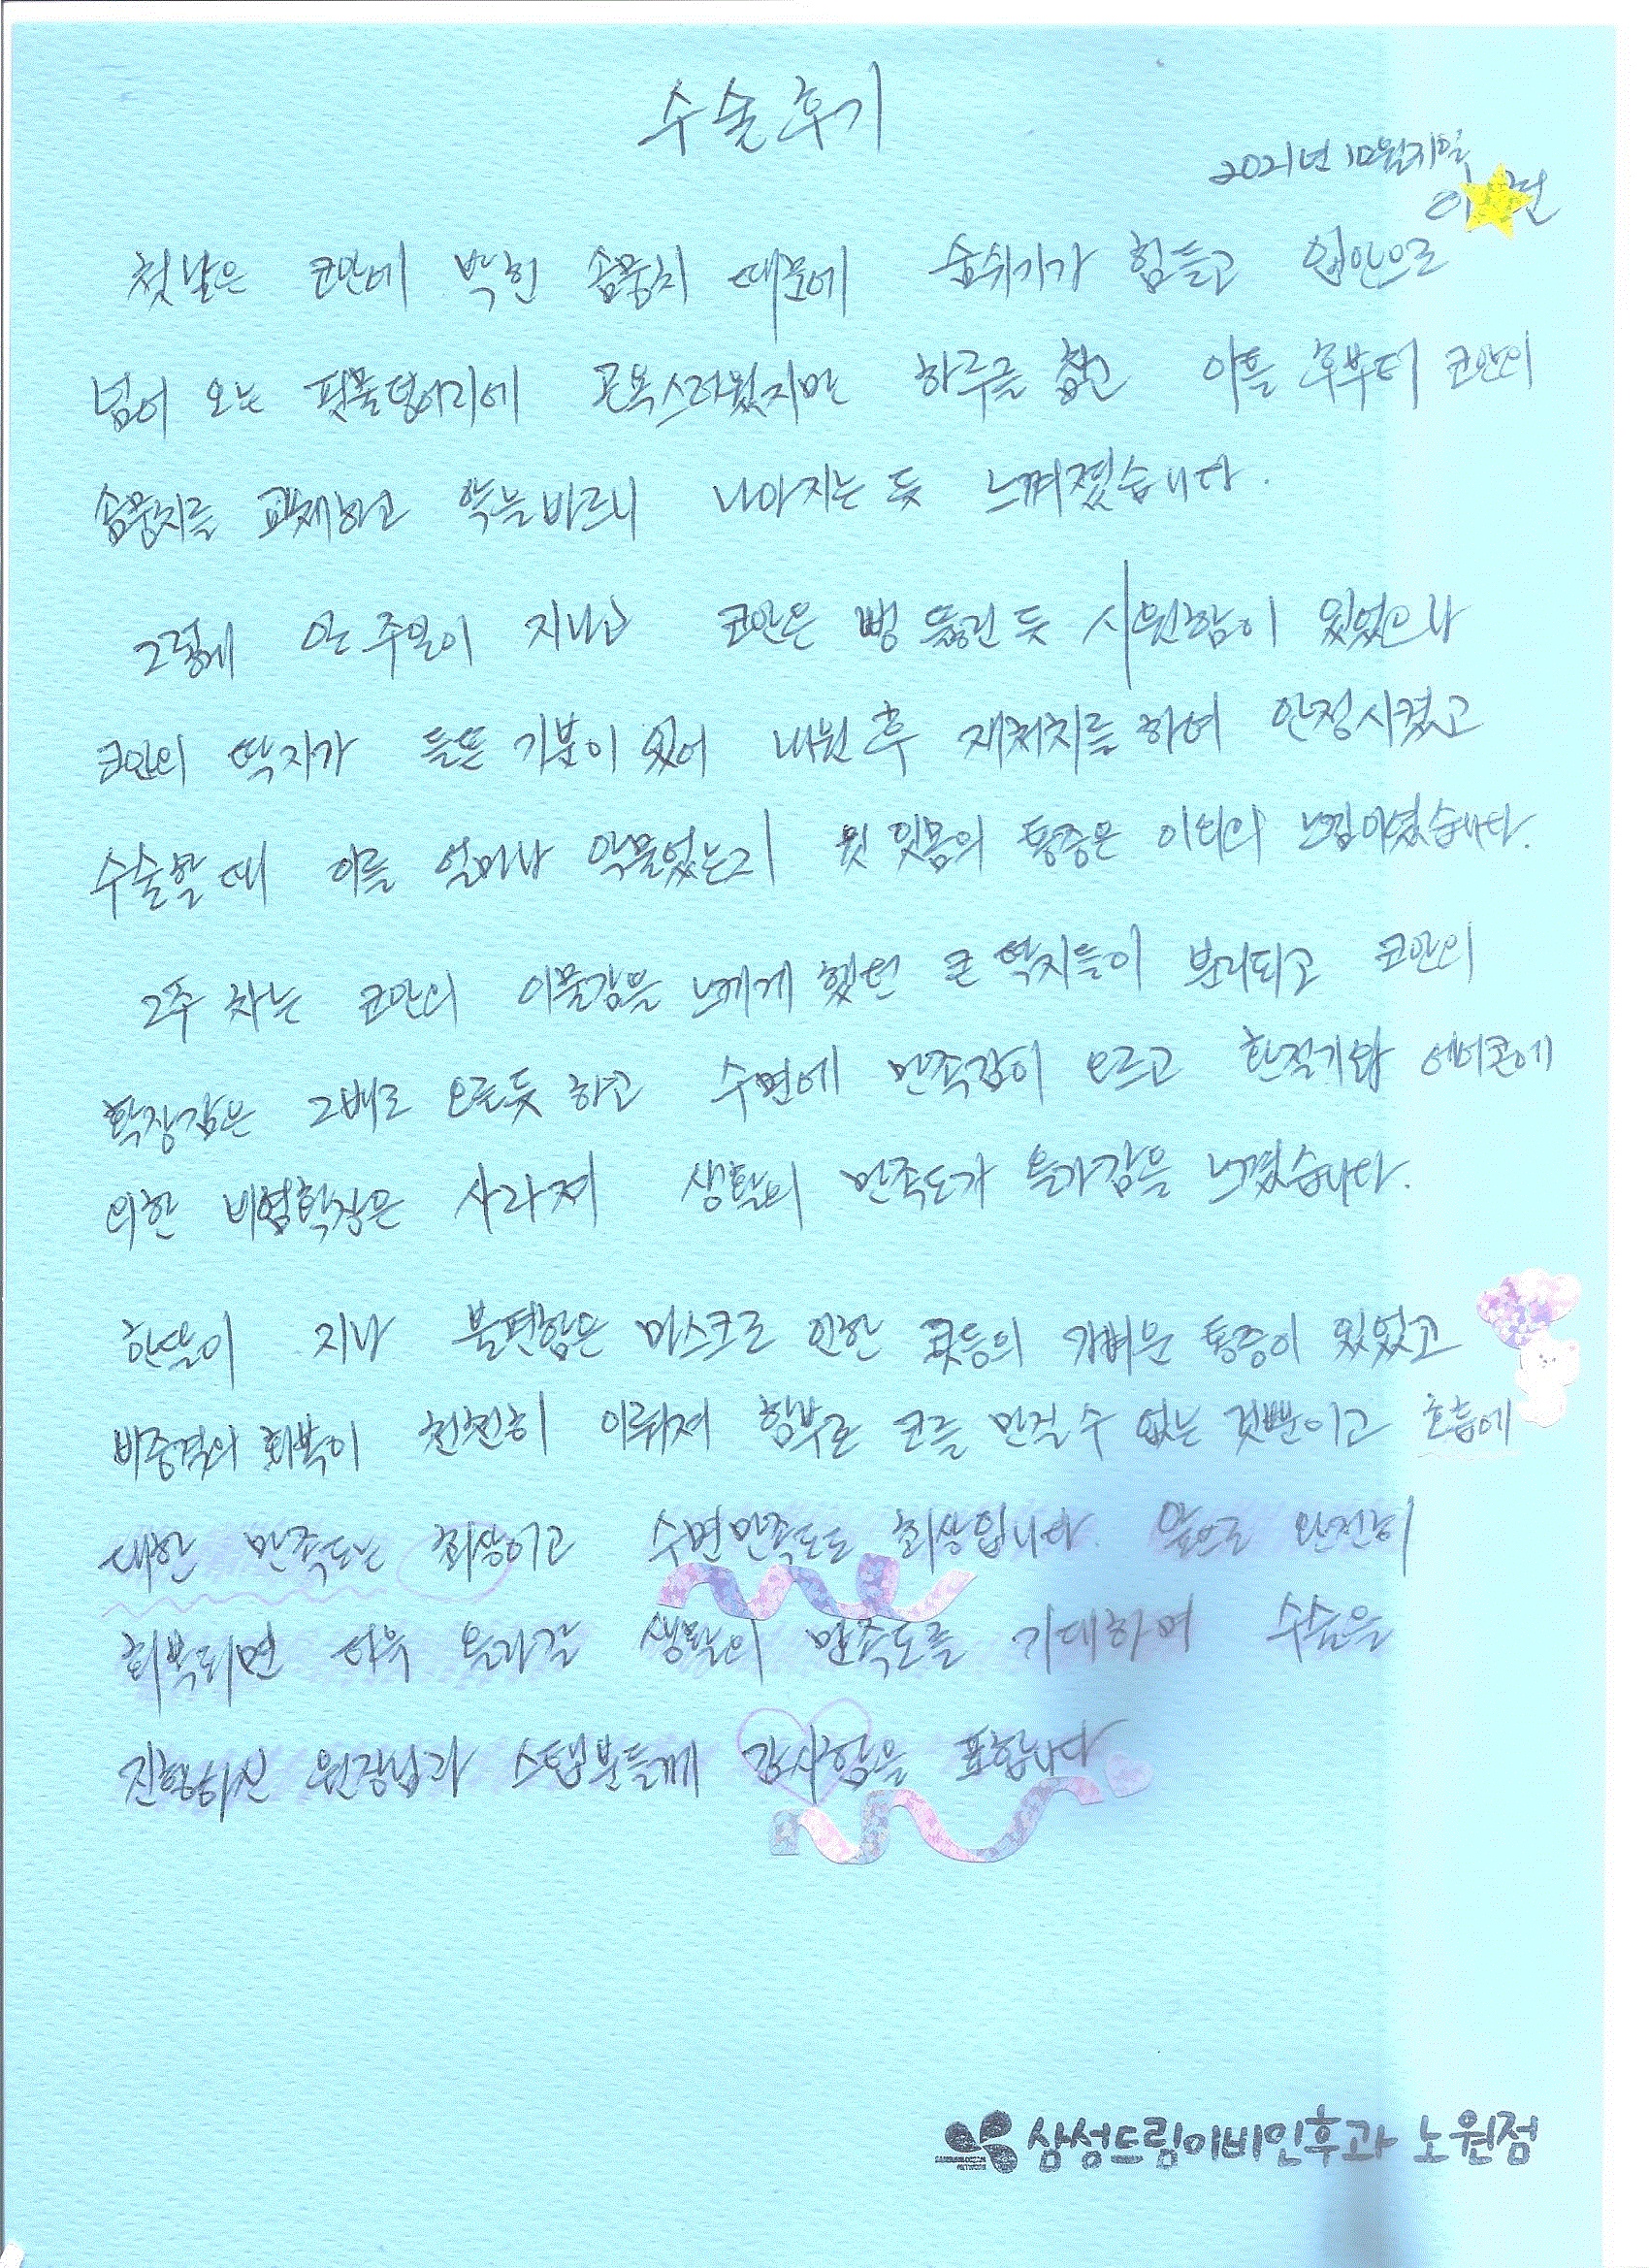 수술후기
2021년 10월
이 현
첫날은 코안에 박힌 솜뭉치 때문에 숨쉬기가 힘들고 입안으로
넘어 오는 핏물덩어리에 곤욕스러웠지만 하루를 참고 이틀 후부터 코안의
솜뭉치를 교체하고 약을바르니 나아지는 듯 느껴졌습니다.
그렇게 일주일이 지나고 코안은 뻥 뚫린 듯 시원함이 있었으나
코안의 딱지가 들뜬 기분이 있어 내원 후 재처치를 하여 안정시켰고
수술할 때 이를 얼마나 악물었는지 윗 잇몸의 통증은 이외의 느낌이였습니다.
2주 차는 코안의 이물감을 느끼게 했던 큰 딱지들이 분리되고 코안의
확장감은 2배로 오른듯 하고 수면에 만족감이 오르고 환절기와 에어콘에
의한 비염확장은 사라져 생활의 만족도가 올라감을 느꼈습니다.
한달이 지나 불편함은 마스크로 인한 콧등의 가벼운 통증이 있었고
비중격의 회복이 천천히 이뤄져 함부로 코를 만질 수 없는 것뿐이고 호흡에
대한 만족도는 최상이고 수면만족도도 최상입니다. 앞으로 완전히
회복되면 더욱 올라갈 생활의 만족도를 기대하며 수술을
진행하신 원장님과 스탭분들께 감사함을 표합니다
삼성드림이비인후과 노원점